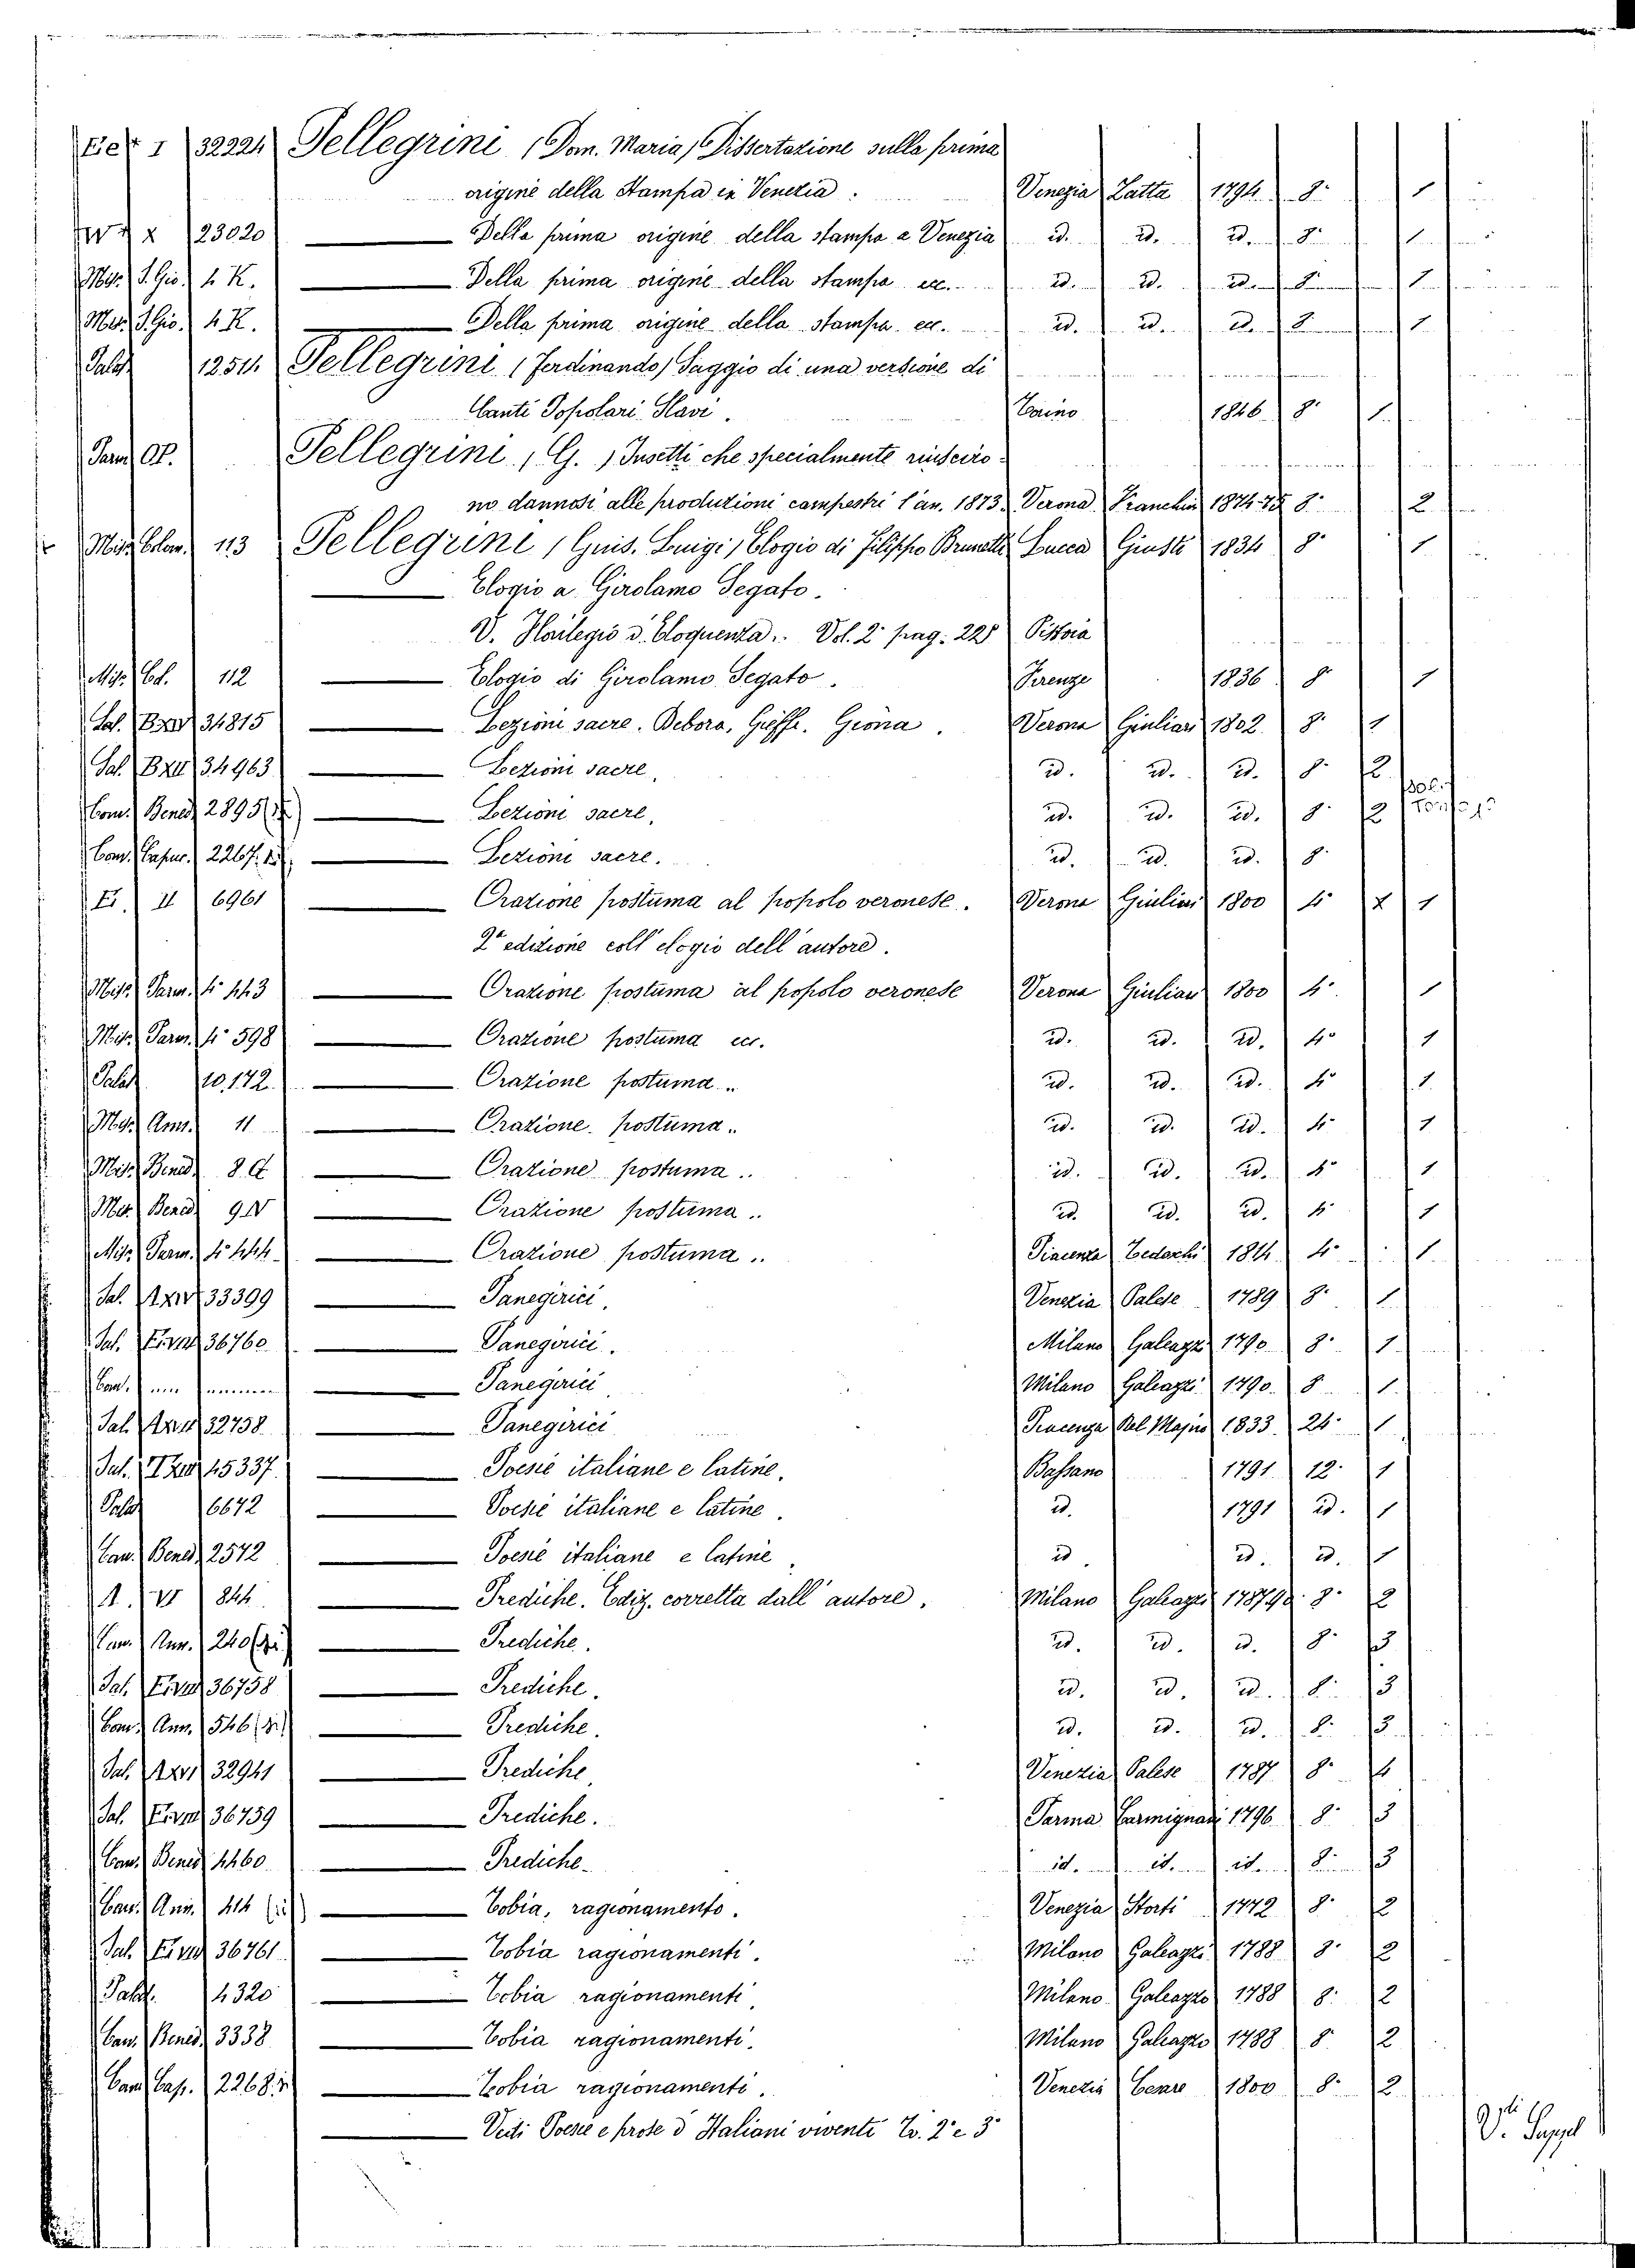 I 32224 Pellegrini (Dom. Maria) Dissertazione sulla prima
origine della Stampa in Venezia. Venezia Zatta 1794. 8° 1
X 23020 Della prima origine della stampa a Venezia id. id. id. 8° 1
Misc. S. Gio. 4 K. Della prima origine della stampa ecc. id. id. id. 8° 1
Misc. S. Gio. 4 K. Della prima origine della stampa ecc. id. id. id. 8 1
Palat. 1254. Pellegrini (Ferdinando) Saggio di una versione di
Canti Popolari Slavi. Torino 1846 8° 1
Parm. Pellegrini (G.) Insetti che specialmente riuscirono
no dannosi alle produzioni campestri l'an. 1873. Verona Franchini 1874-75 8° 2
Misc. Colom. 113 Pellegrini (Gius. Luigi) Elogio di Filippo Brunelle Lucca Giusti 1834 8° 1
Elogio a Girolamo Segato.
V. Florilegio d'Eloquenza. Vol. 2° pag. 225 Pistoia
Misc. Col. 112 Elogio di Girolamo Segato. Firenze 1836 8° 1
Sal. 34815 Lezioni sacre. Debora, Gieffe. Giona. Verona Giuliari 1802. 8° 1
Sal. BXII 34963 Lezioni sacre. id. id. id. 8° 2
Com. Bened. 2895 Lezioni sacre. id. id. id. 8° 2
Com. Capuc. 2267. Lezioni sacre. id. id. id. 8°
II 6961 Orazione postuma al popolo veronese. Verona Giuliari 1800 4° X 1
2ª edizione coll'elogio dell'autore.
Misc. Parm. 4° 443 Orazione postuma al popolo veronese Verona Giuliari 1800 4° 1
Misc. Parm. 4° 598 Orazione postuma ecc. id. id. id. 4° 1
Palat. 10,172. Orazione postuma.. id. id. id. 4° 1
Misc. Ann. 11 Orazione postuma.. id. id. id. 4° 1
Misc. Bened. 8. Orazione postuma.. id. id. id. 4° 1
Misc. Bened. 9 Orazione postuma.. id. id. id. 4° 1
Misc. Parm. 4° 444 Orazione postuma.. Piacenza Tedeschi 1814 4° 1
Sal. 33399 Panegirici. Venezia Palese 1789 8° 1
Sal. 36760 Panegirici. Milano Galeazzi 1790 8° 1
Panegirici Milano Galeazzi 1790. 8 1
Sal. 32738 Panegirici Piacenza Del Majno 1833 24° 1
Sal. 45337 Poesie italiane e latine. Bassano 1791 12° 1
Palat. 6672 Poesie italiane e latine. id. 1791 id. 1
Bened. 2572 Poesie italiane e latine. id. id. id. 1
A. VI 844 Prediche. Ediz. corretta dall'autore. Milano Galeazzi 8° 2
Ann. 240 Prediche. id. id. id. 8° 3
Sal. 36758 Prediche. id. id. id. 8° 3
Com. Ann. 546 Prediche. id. id. id. 8° 3
Sal. AXVI 32941 Prediche Venezia Palese 1787 8° 4
Sal. 36759 Prediche. Parma Carmignani 1796 8° 3
Bened. 4460 Prediche. id. id. id. 8° 3
Ann. 414 Tobia, ragionamento. Venezia Storti 1772 8° 2
Sal. 36761 Tobia ragionamenti. Milano Galeazzi 1788 8° 2
Palat. 4320 Tobia ragionamenti. Milano Galeazzo 1788 8° 2
Bened. 3338 Tobia ragionamenti. Milano Galeazzo 1788 8° 2
Cap. 2268 Tobia ragionamenti. Venezia 1800 8° 2
Vedi Poesie e prose d'Italiani viventi To. 2° e 3°